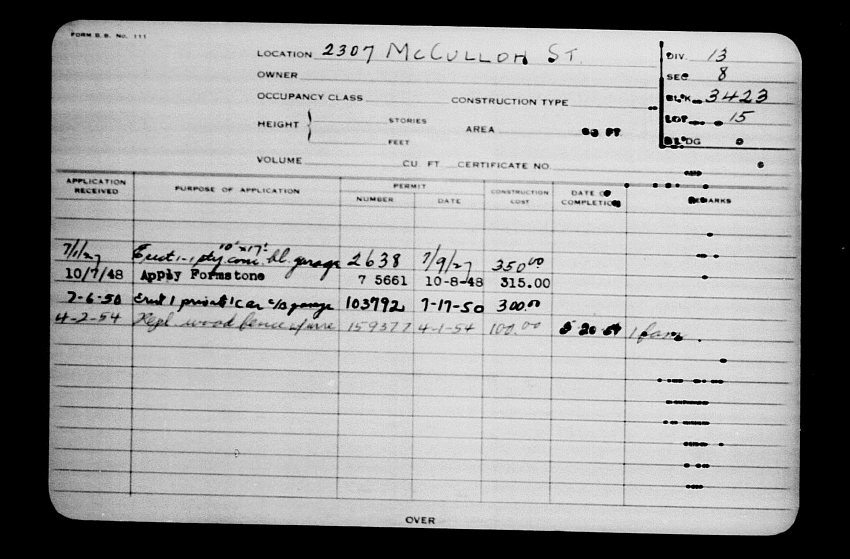 FORM B.B. No. 111
LOCATION 2307 McCULLOH ST.
DIV. 13
OWNER
SEC 8
OCCUPANCY CLASS CONSTRUCTION TYPE
BLK 3423
HEIGHT } STORIES FEET AREA SQ FT.
LOT 15
BLDG 0
VOLUME CU FT CERTIFICATE NO.
APPLICATION RECEIVED PURPOSE OF APPLICATION PERMIT NUMBER DATE CONSTRUCTION COST DATE OF COMPLETION REMARKS
10'x17'
7/1/27 Erect 1-1 sty. conc. bl. garage 2638 7/9/27 350.00
10/7/48 Apply Formstone 7 5661 10-8-48 315.00
7-6-50 Erect 1 private 1 car c/b garage 103792 7-17-50 300.00
4-2-54 Repl wood fence w/wire 159377 4-1-54 100.00 5 20 54 1 fam.
OVER